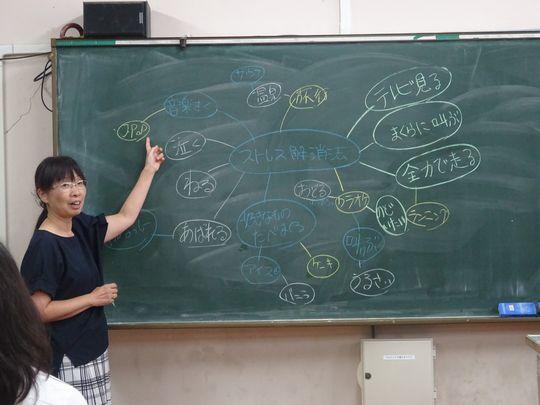 サウナ
温泉
音楽きく
テレビ見る
まくらに叫ぶ
泣く
ストレス解消法
ねる
全力で走る
おどる
カラオケ
ランニング
あばれる
好きなもの
たべまくる
叫ぶ
アイス
ケーキ
バニラ
うるさい